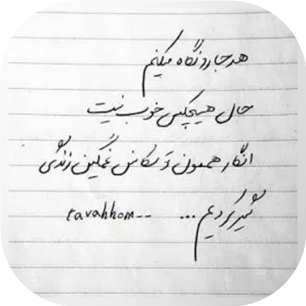 هر جا رو نگاه میکنیم
حال هیچکس خوب نیست
انگار هممون تو سکانس غمگین زندگی
گیر کردیم ... tavahhom--